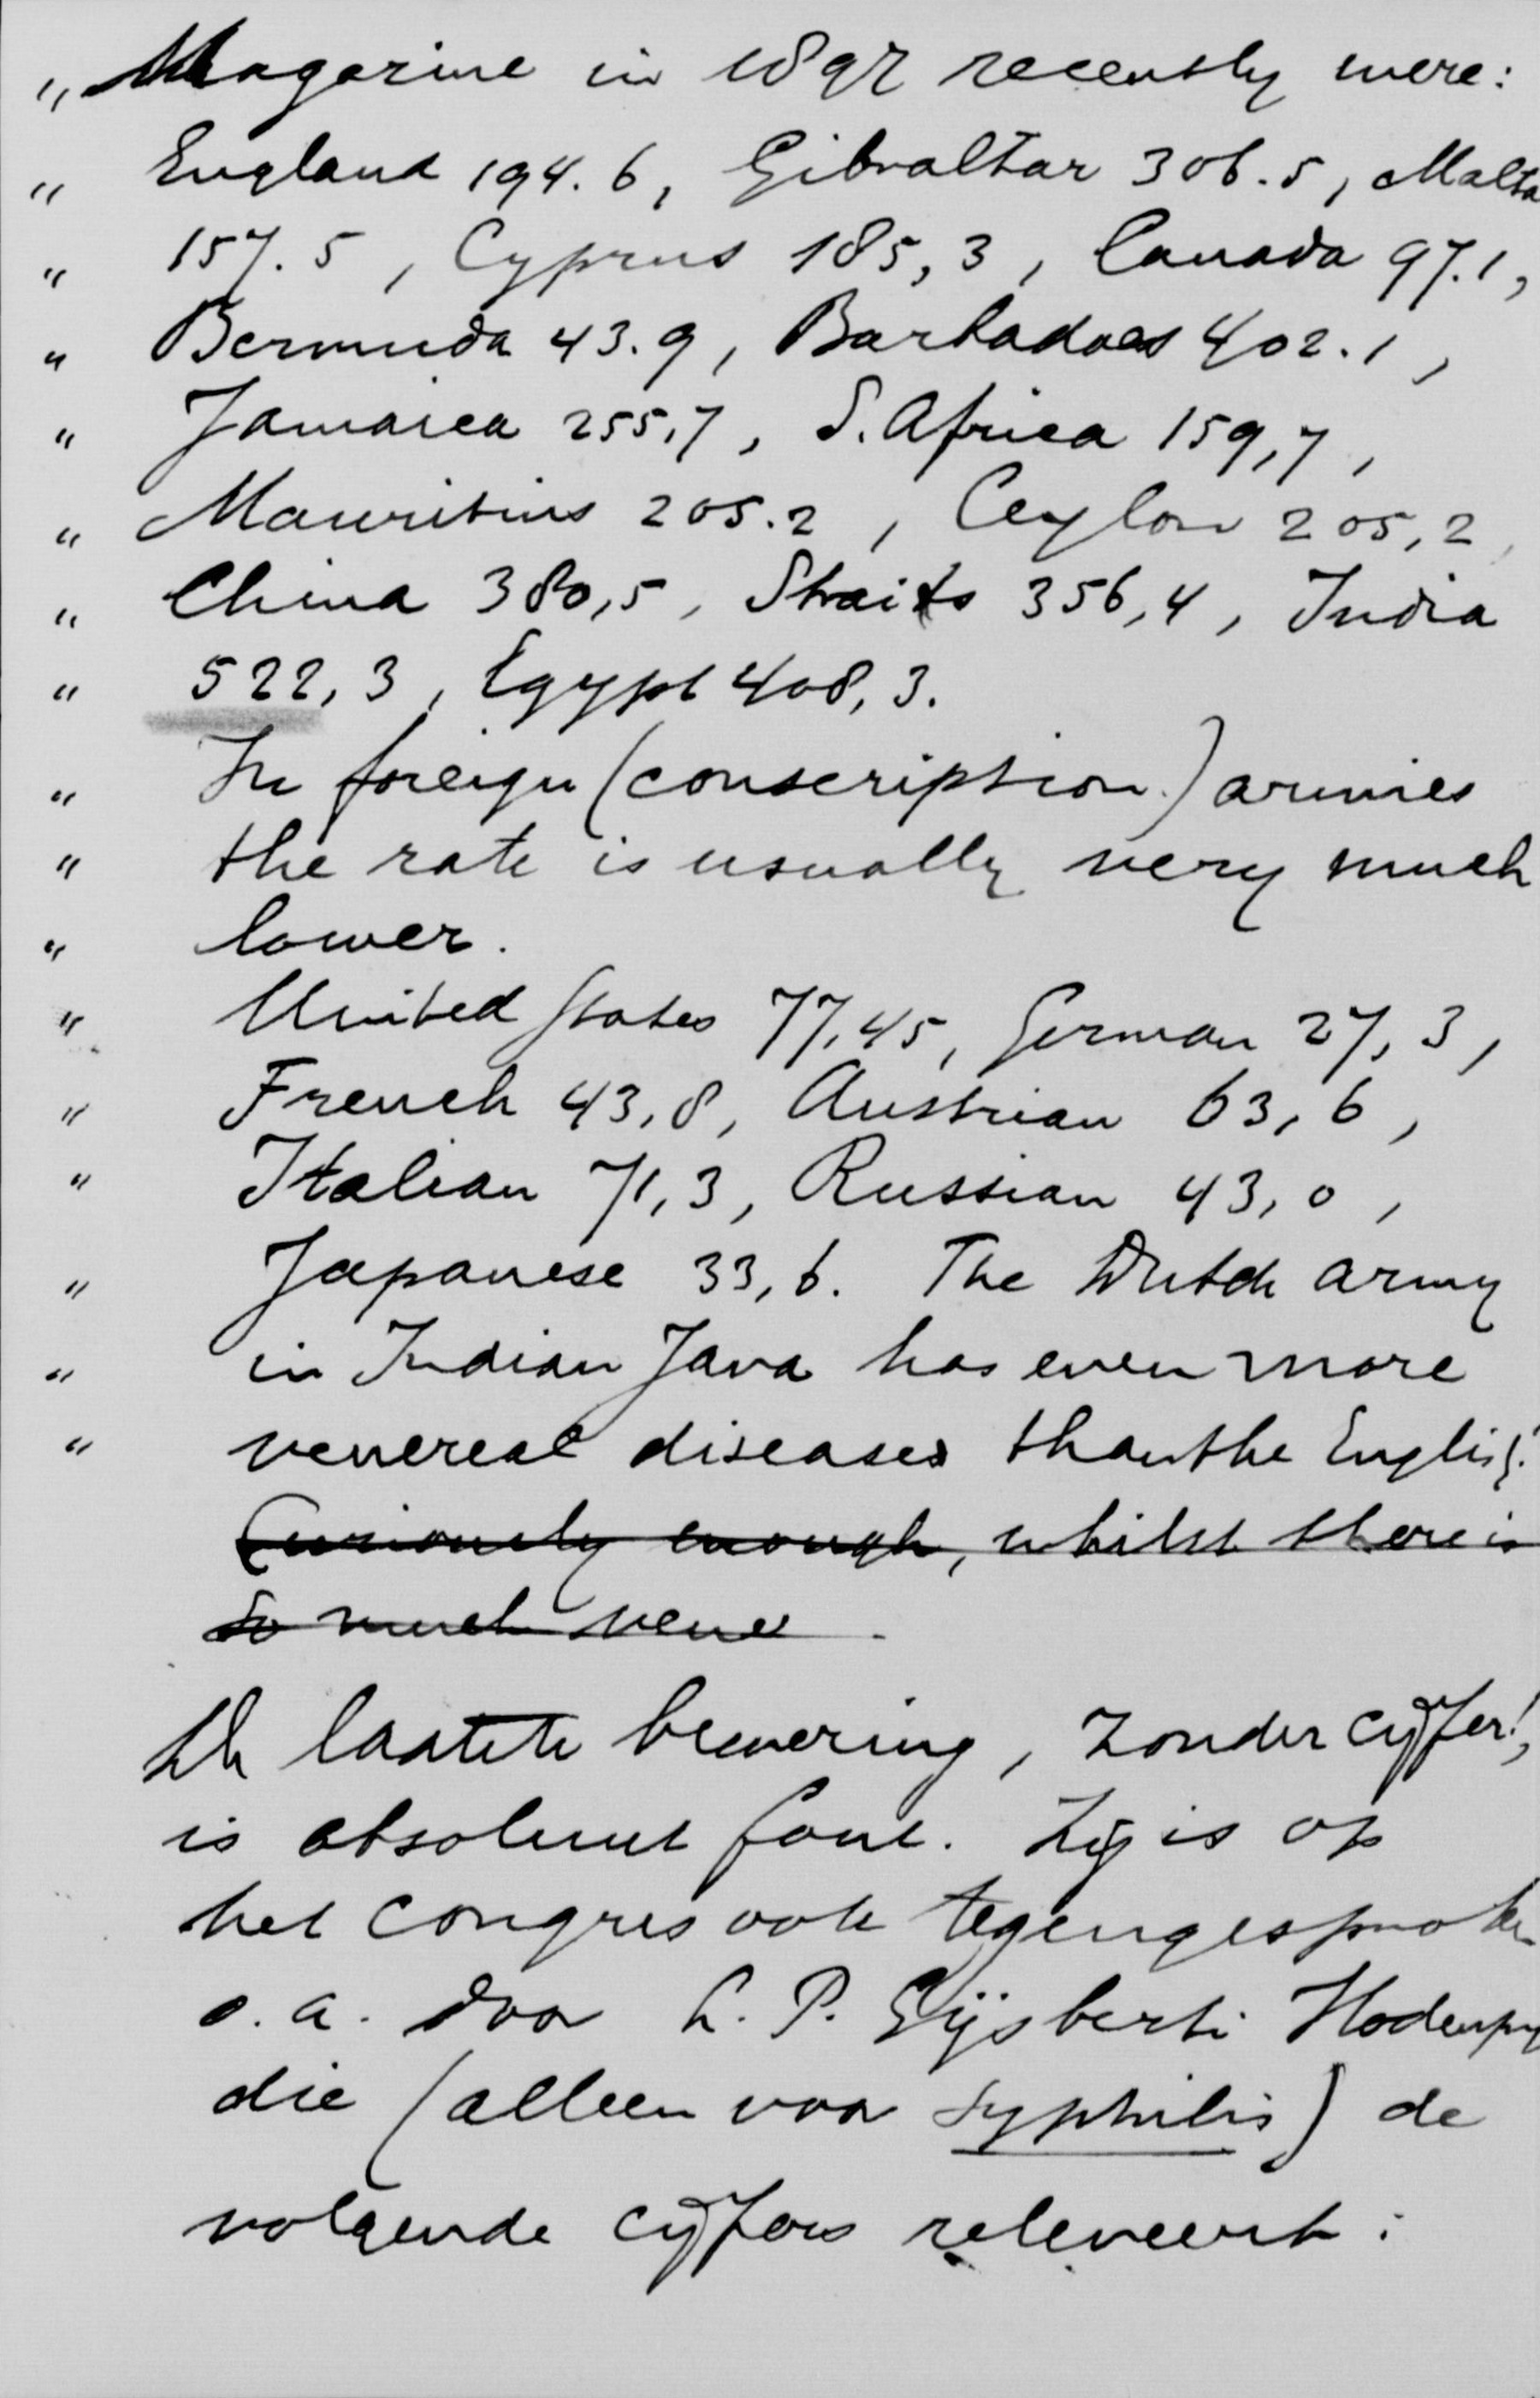 „ Magazine in 1897 recently were:
„ England 194.6, Gibraltar 306.5, Malta
„ 157.5, Cyprus 185,3, Canada 97.1,
„ Bermuda 43.9, Barbadoes 402.1,
„ Jamaica 255,7, S. Africa 159,7,
„ Mauritius 205.2, Ceylon 205,2,
„ China 380,5, Straits 356,4, India
„ 522,3, Egypt 408,3.
„ In foreign (conscription) armies
„ the rate is usually very much
„ lower.
„ United States 77,45, German 27,3,
„ French 43,8, Austrian 63,6,
„ Italian 71,3, Russian 43,0,
„ Japanese 33,6. The Dutch army
„ in Indian Java has even more
„ venereal diseases than the English.
Curiously enough, whilst there is
so much vene
De laatste bewering, zonder cijfer!,
is absoluut fout. Zij is op
het congres ook tegengesproken
o.a. door L. P. Gijsberti Hodenpijl
die (alleen voor syphilis) de
volgende cijfers releveert: